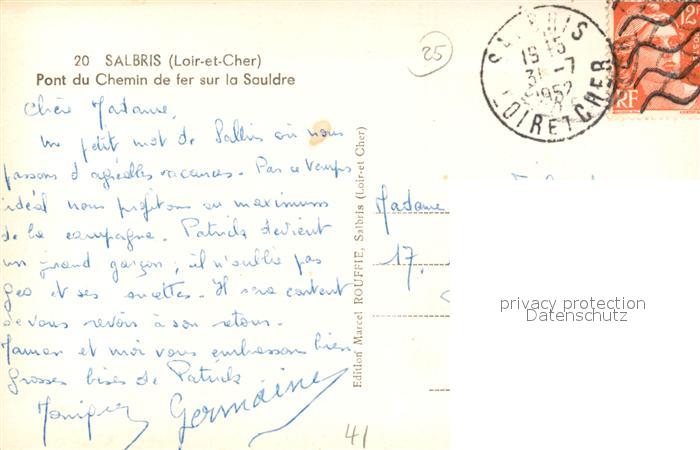 20 SALBRIS (Loir-et-Cher)
Pont du Chemin de fer sur la Sauldre
25
SALBRIS
19 15
31 -7
1952
LOIR ET CHER
12F
RF
Chère Madame,
Un petit mot de Salbris où nous
passons d'agréables vacances. Par ce temps
idéal nous profitons au maximum
de la campagne. Patrick devient
un grand garçon, il n'oublie pas
Geo et ses sucettes. Il sera content
de vous revoir à son retour.
Maman et moi vous embrassons bien
grosses bises de Patrick
Germaine
Edition Marcel ROUFFIE, Salbris (Loir-et Cher)
Madame
17.
41
privacy protection
Datenschutz